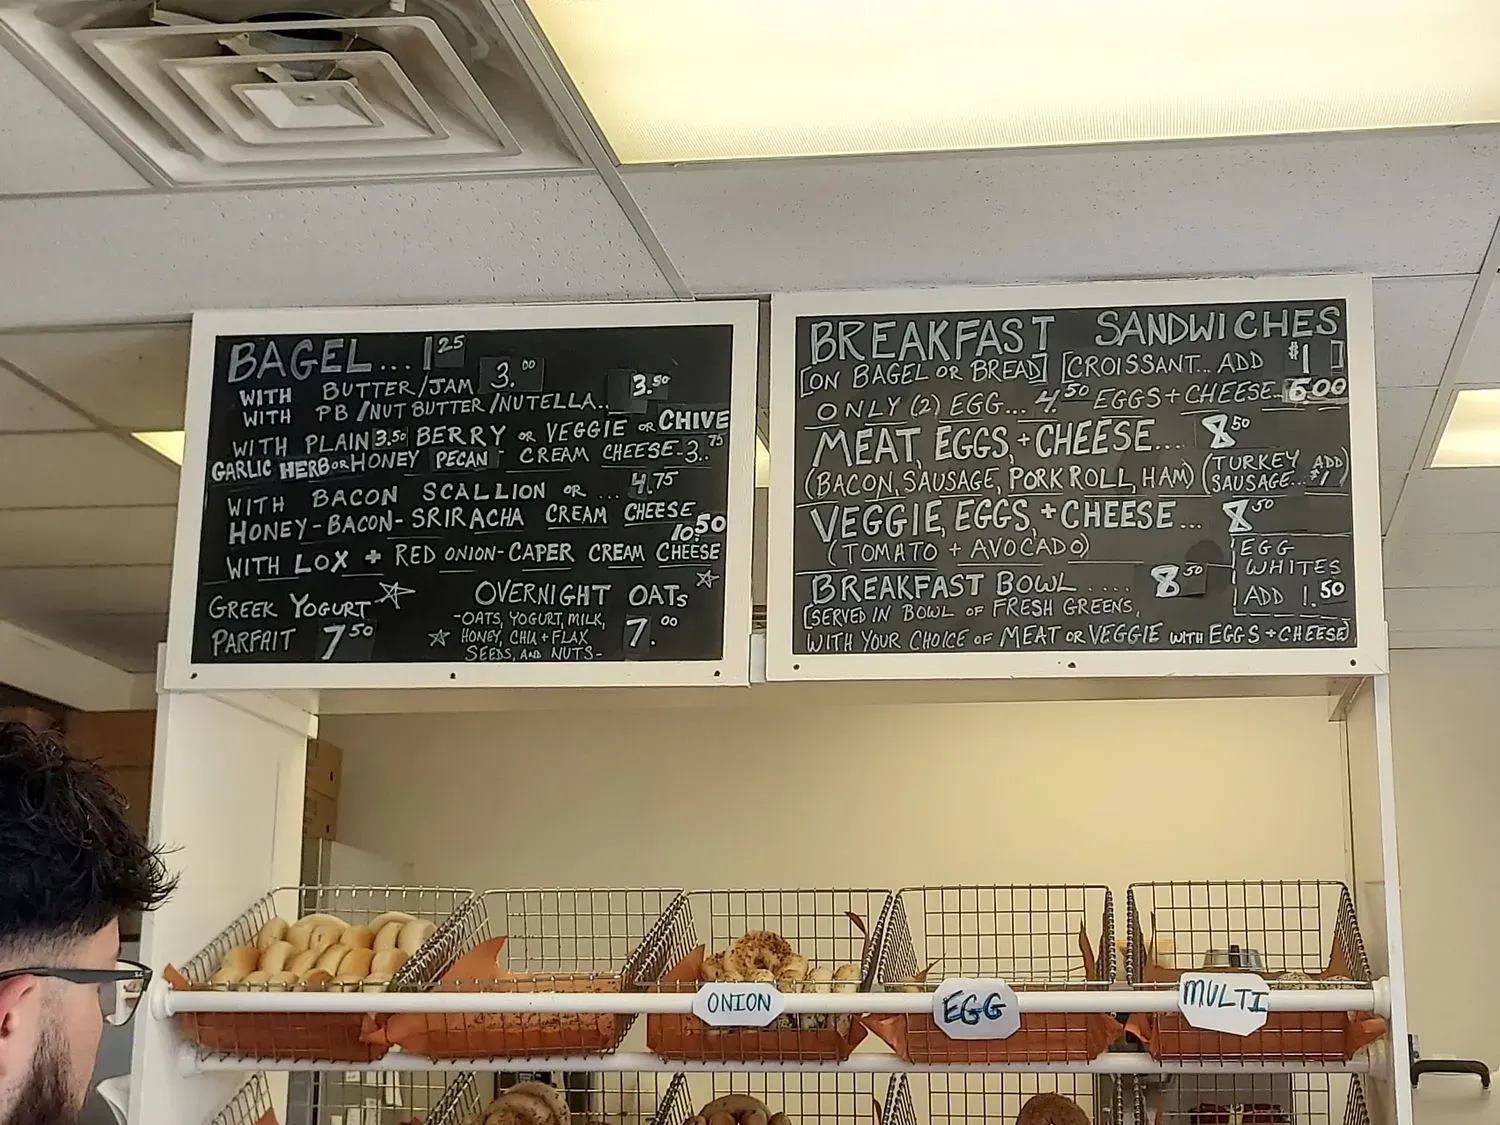 BAGEL... 1 25
WITH BUTTER/JAM 3.00
WITH PB/NUT BUTTER/NUTELLA... 3.50
WITH PLAIN 3.50 BERRY OR VEGGIE OR CHIVE
GARLIC HERB OR HONEY PECAN - CREAM CHEESE-3.75
WITH BACON SCALLION OR ... 4.75
HONEY-BACON-SRIRACHA CREAM CHEESE
10.50
WITH LOX + RED ONION-CAPER CREAM CHEESE
GREEK YOGURT
PARFAIT 7 50
OVERNIGHT OATS
-OATS, YOGURT, MILK,
HONEY, CHIA + FLAX
SEEDS, AND NUTS-
7.00
BREAKFAST SANDWICHES
[ON BAGEL OR BREAD] [CROISSANT... ADD $1]
ONLY (2) EGG... 4.50 EGGS + CHEESE... 6.00
MEAT, EGGS, + CHEESE... 8 50
(BACON, SAUSAGE, PORK ROLL, HAM) (TURKEY SAUSAGE... ADD $1)
VEGGIE, EGGS, + CHEESE... 8 50
(TOMATO + AVOCADO)
EGG
WHITES
ADD 1.50
BREAKFAST BOWL .... 8 50
[SERVED IN BOWL OF FRESH GREENS,
WITH YOUR CHOICE OF MEAT OR VEGGIE WITH EGGS + CHEESE]
ONION
EGG
MULTI